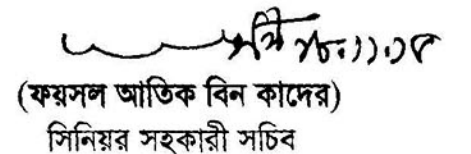 (ফয়সল আতিক বিন কাদের)
সিনিয়র সহকারী সচিব